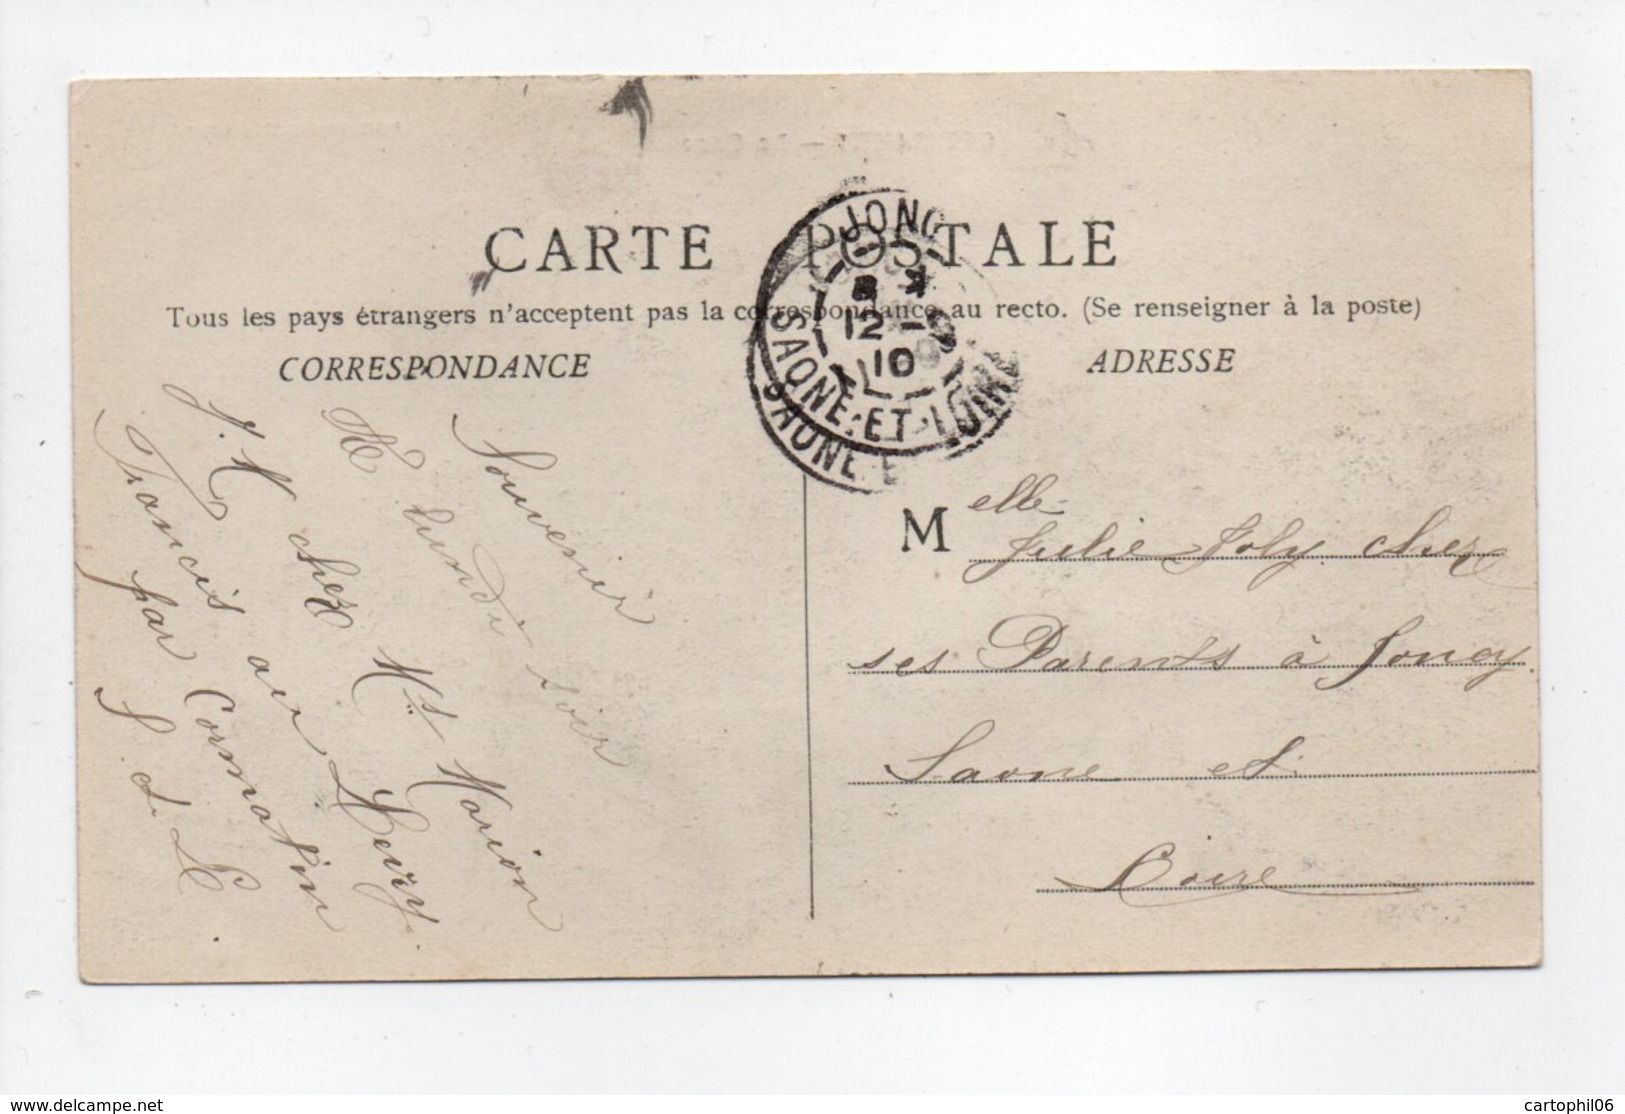 CARTE POSTALE
Tous les pays étrangers n'acceptent pas la correspondance au recto. (Se renseigner à la poste)
CORRESPONDANCE
ADRESSE
JONC
8
12 - 9
10
SAONE-ET-LOIRE
SAONE E
Souvenir
lundi soir
J. M chez Ms Marion
Francis au
par Cormatin
S. et L.
Melle Julie Joly chez
ses Parents à Joncy
Saone et
Loire
www.delcampe.net
cartophil06